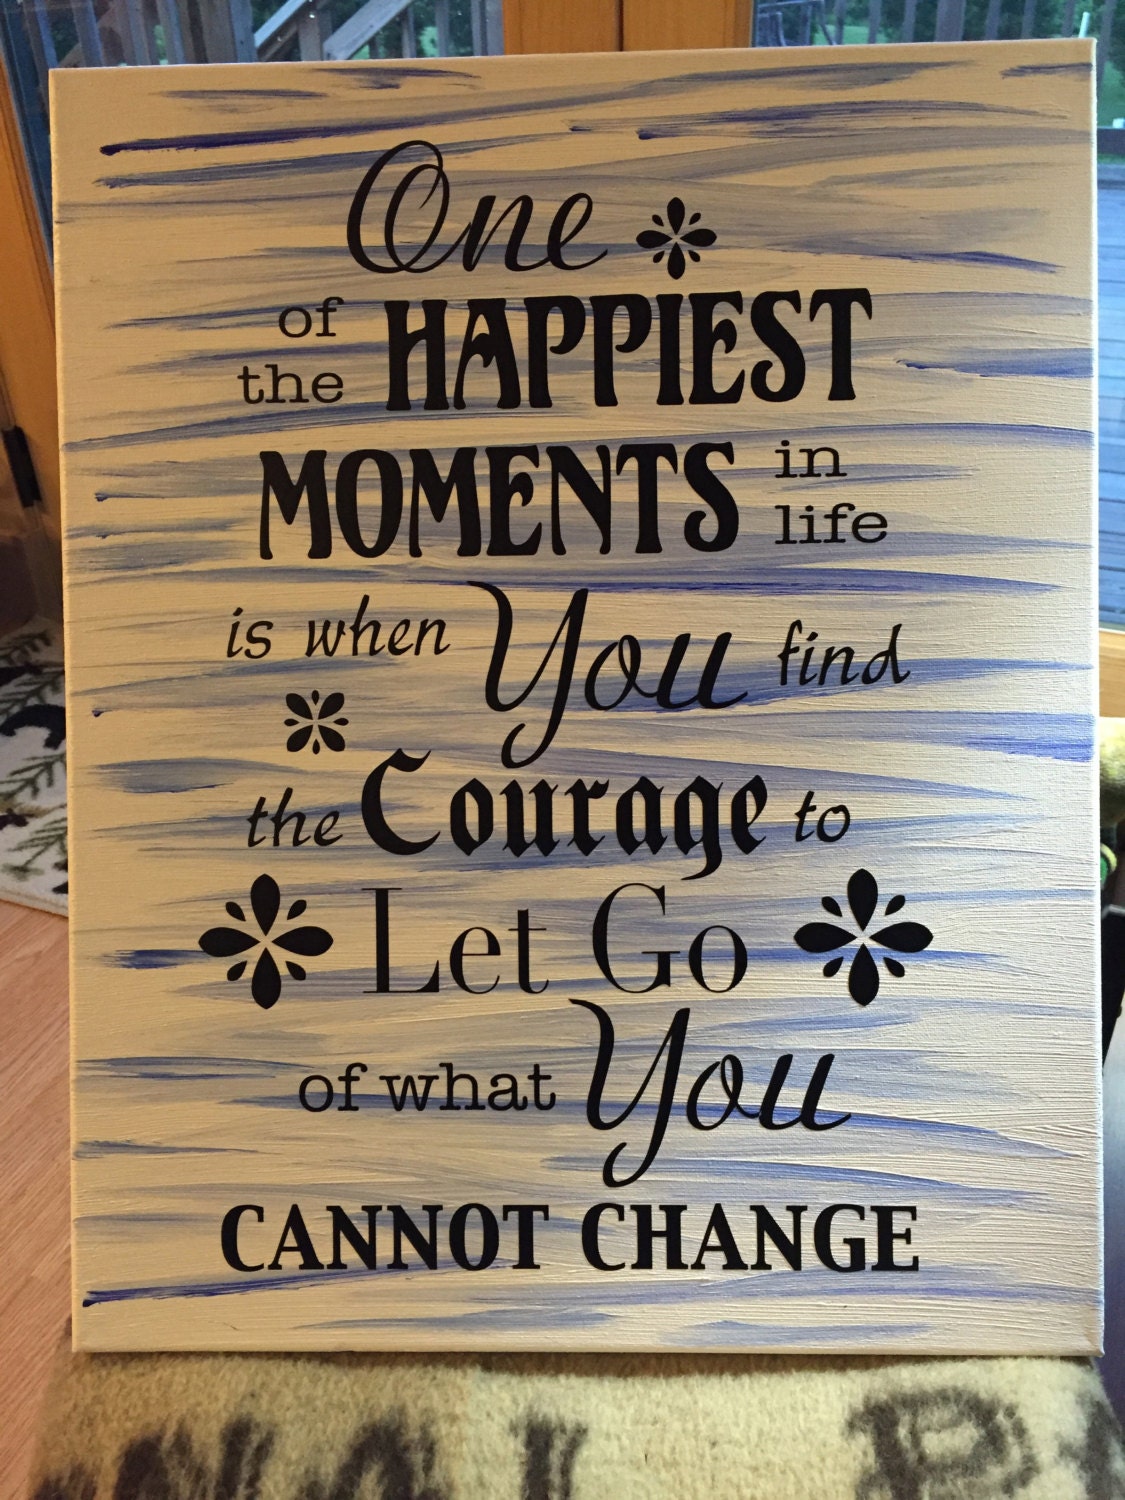 One
of the HAPPIEST
MOMENTS in life
is when You find
the Courage to
Let Go
of what You
CANNOT CHANGE